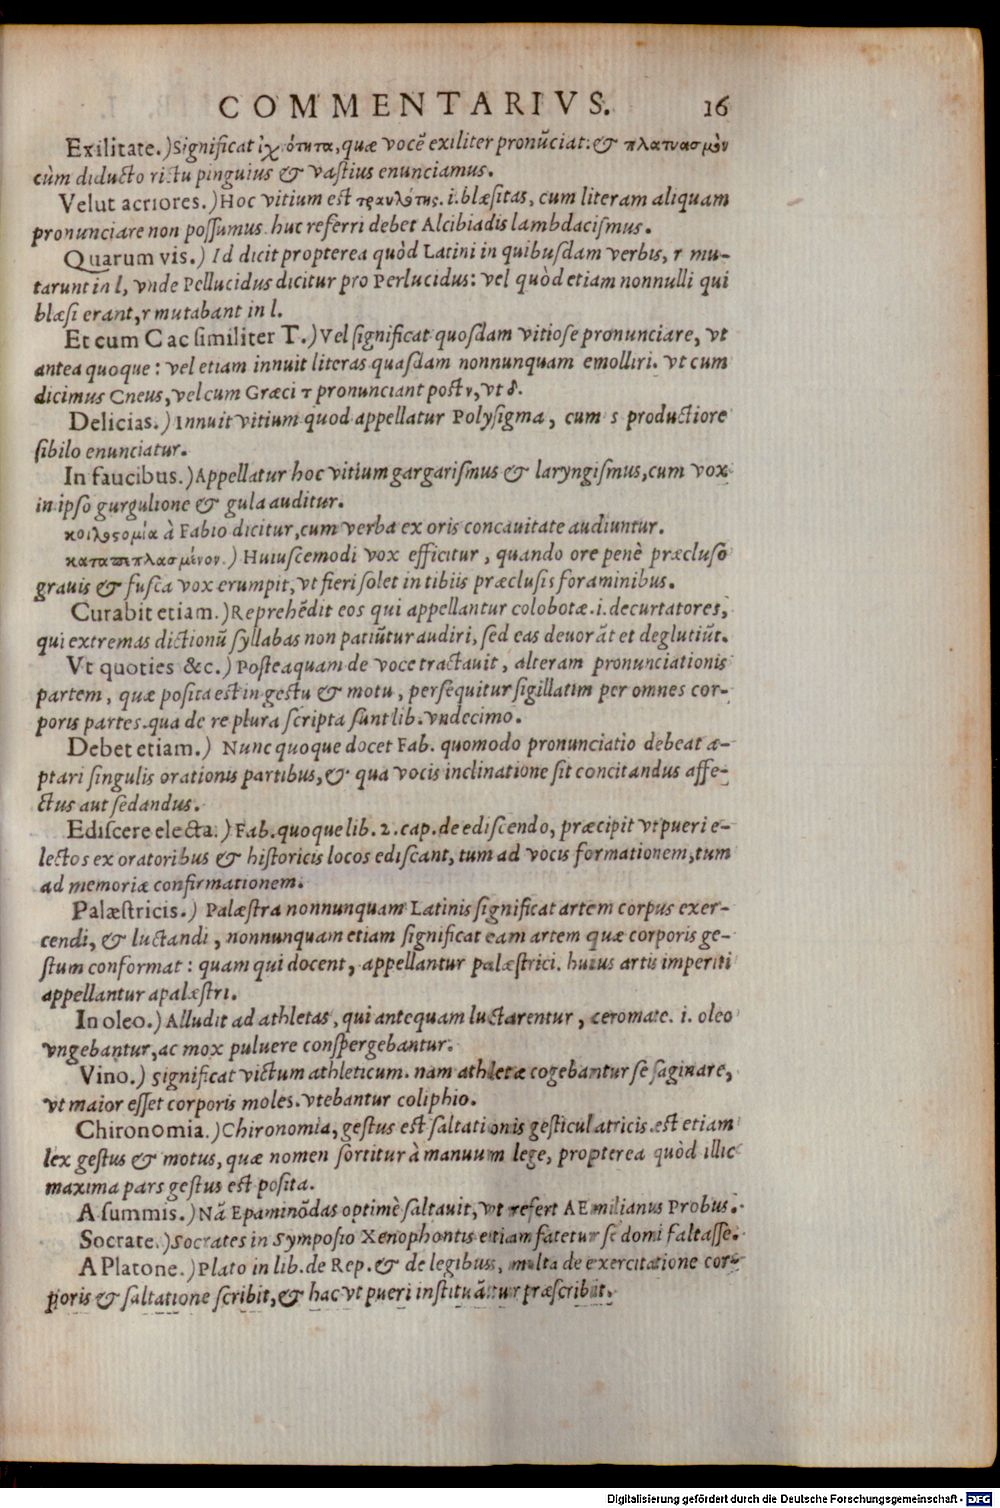 COMMENTARIVS. 16
Exilitate.) Significat ἰχνότητα, quæ vocẽ exiliter pronũciat: & πλατυασμὸν
cùm diducto rictu pinguius & vastius enunciamus.
Velut acriores.) Hoc vitium est τραυλότης. i. blæsitas, cum literam aliquam
pronunciare non possumus. huc referri debet Alcibiadis lambdacismus.
Quarum vis.) Id dicit propterea quòd Latini in quibusdam verbis, r mu-
tarunt in l, vnde Pellucidus dicitur pro Perlucidus: vel quòd etiam nonnulli qui
blæsi erant, r mutabant in l.
Et cum C ac similiter T.) Vel significat quosdam vitiose pronunciare, vt
antea quoque: vel etiam innuit literas quasdam nonnunquam emolliri. vt cum
dicimus Cneus, vel cum Græci τ pronunciant post ν, vt δ.
Delicias.) Innuit vitium quod appellatur Polysigma, cum s productiore
sibilo enunciatur.
In faucibus.) Appellatur hoc vitium gargarismus & laryngismus, cum vox
in ipso gurgulione & gula auditur.
κοιλοςομία à Fabio dicitur, cum verba ex oris concauitate audiuntur.
καταπεπλασμένον.) Huiuscemodi vox efficitur, quando ore penè præcluso
grauis & fusca vox erumpit, vt fieri solet in tibiis præclusis foraminibus.
Curabit etiam.) Reprehẽdit eos qui appellantur colobotæ. i. decurtatores,
qui extremas dictionũ syllabas non patiũtur audiri, sed eas deuorãt et deglutiũt.
Vt quoties &c.) Posteaquam de voce tractauit, alteram pronunciationis
partem, quæ posita est in gestu & motu, persequitur sigillatim per omnes cor-
poris partes. qua de re plura scripta sunt lib. vndecimo.
Debet etiam.) Nunc quoque docet Fab. quomodo pronunciatio debeat a-
ptari singulis orationis partibus, & qua vocis inclinatione sit concitandus affe-
ctus aut sedandus.
Ediscere electa.) Fab. quoque lib. 2. cap. de ediscendo, præcipit vt pueri e-
lectos ex oratoribus & historicis locos ediscant, tum ad vocis formationem, tum
ad memoriæ confirmationem.
Palæstricis.) Palæstra nonnunquam Latinis significat artem corpus exer-
cendi, & luctandi, nonnunquam etiam significat eam artem quæ corporis ge-
stum conformat: quam qui docent, appellantur palæstrici. huius artis imperiti
appellantur apalæstri.
In oleo.) Alludit ad athletas, qui antequam luctarentur, ceromate. i. oleo
vngebantur, ac mox puluere conspergebantur.
Vino.) Significat victum athleticum. nam athletæ cogebantur se saginare,
vt maior esset corporis moles. vtebantur coliphio.
Chironomia.) Chironomia, gestus est saltationis gesticulatricis. est etiam
lex gestus & motus, quæ nomen sortitur à manuum lege, propterea quòd illic
maxima pars gestus est posita.
A summis.) Nã Epaminõdas optimè saltauit, vt refert AEmilianus Probus.
Socrate.) Socrates in Symposio Xenophontis etiam fatetur se domi saltasse.
A Platone.) Plato in lib. de Rep. & de legibus, multa de exercitatione cor-
poris & saltatione scribit, & hac vt pueri instituãtur præscribit.
Digitalisierung gefördert durch die Deutsche Forschungsgemeinschaft - DFG